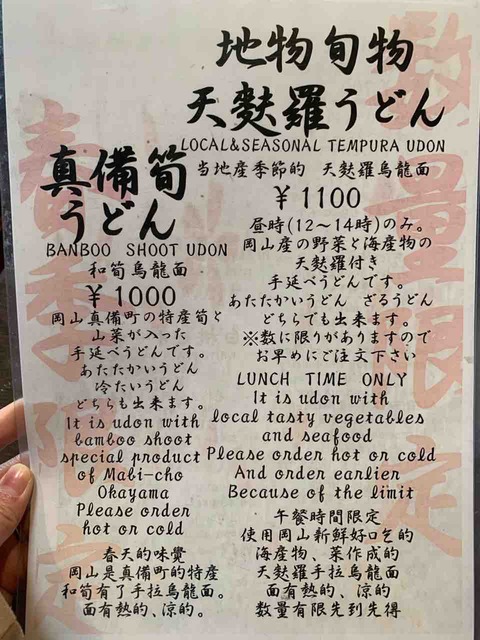 数量限定
地物旬物
天麩羅うどん
LOCAL&SEASONAL TEMPURA UDON
当地産季節的 天麩羅烏龍面
¥1100
昼時(12～14時)のみ。
岡山産の野菜と海産物の
天麩羅付き
手延べうどんです。
あたたかいうどん ざるうどん
どちらでも出来ます。
※数に限りがありますので
お早めにご注文下さい
LUNCH TIME ONLY
It is udon with
local tasty vegetables
and seafood
Please order hot or cold
And order earlier
Because of the limit
午餐時間限定
使用岡山新鮮好口乞的
海産物、菜作成的
天麩羅手拉烏龍面
面有熱的、涼的。
数量有限先到先得
春季限定
真備筍
うどん
BANBOO SHOOT UDON
和筍烏龍面
¥1000
岡山真備町の特産筍と
山菜が入った
手延べうどんです。
あたたかいうどん
冷たいうどん
どちらも出来ます。
It is udon with
bamboo shoot
special product
of Mabi-cho
Okayama
Please order
hot or cold
春天的味覺
岡山是真備町的特産
和筍有了手拉烏龍面。
面有熱的、涼的。